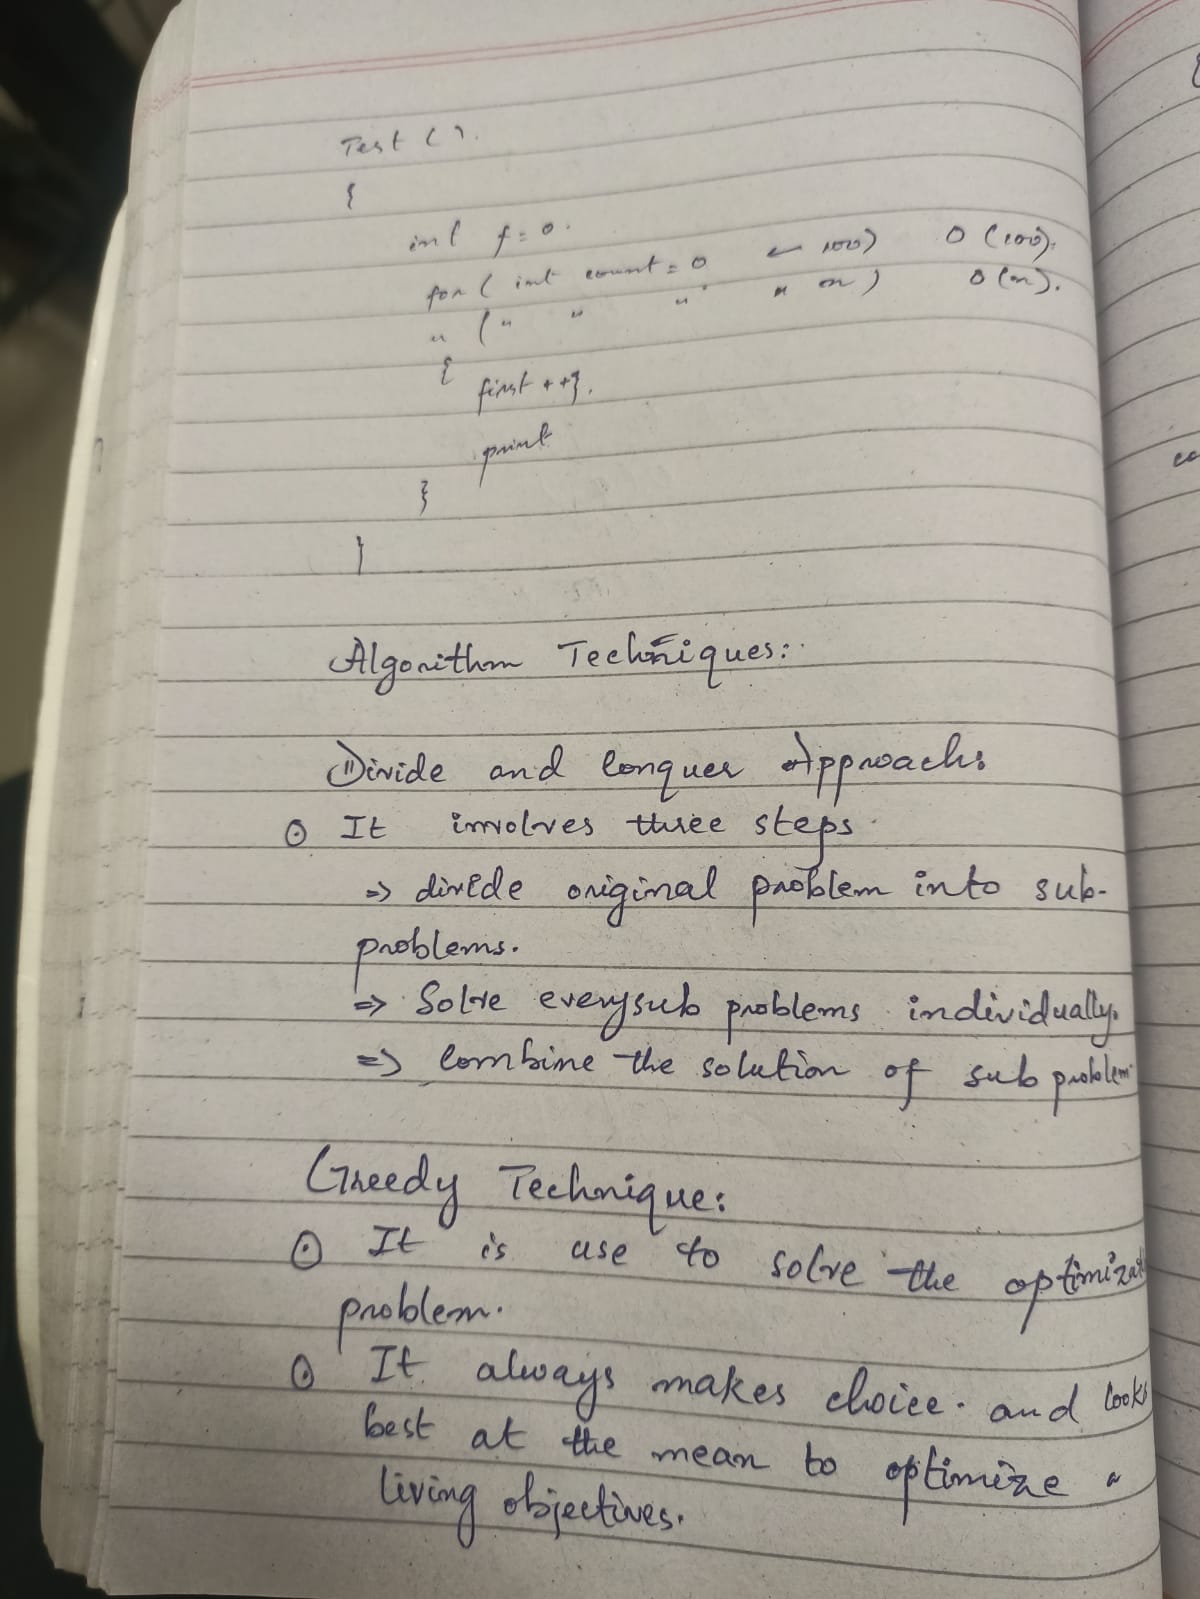 Test ( ).
{
int f = 0.
for ( int count = 0 ← 100) O (100).
" ( " " " " n ) O (n).
{
first ++}.
print
}
}
Algorithm Techniques:
Divide and Conquer Approach:
⊙ It involves three steps
⇒ divide original problem into sub-
problems.
⇒ Solve every sub problems individually.
⇒ Combine the solution of sub problem
Greedy Technique:
⊙ It is use to solve the optimizat
problem.
⊙ It always makes choice. and looks
best at the mean to optimize a
living objectives.